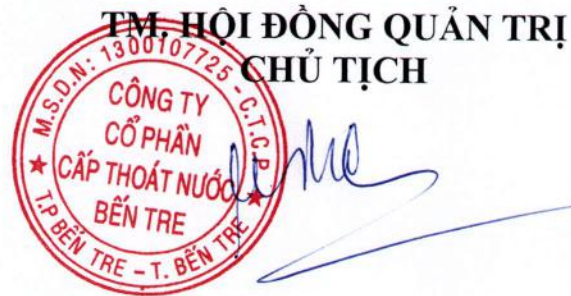 TM. HỘI ĐỒNG QUẢN TRỊ
CHỦ TỊCH
M.S.D.N: 1300107725 - C.T.C.P
CÔNG TY
CỔ PHẦN
CẤP THOÁT NƯỚC
BẾN TRE
T.P BẾN TRE - T. BẾN TRE